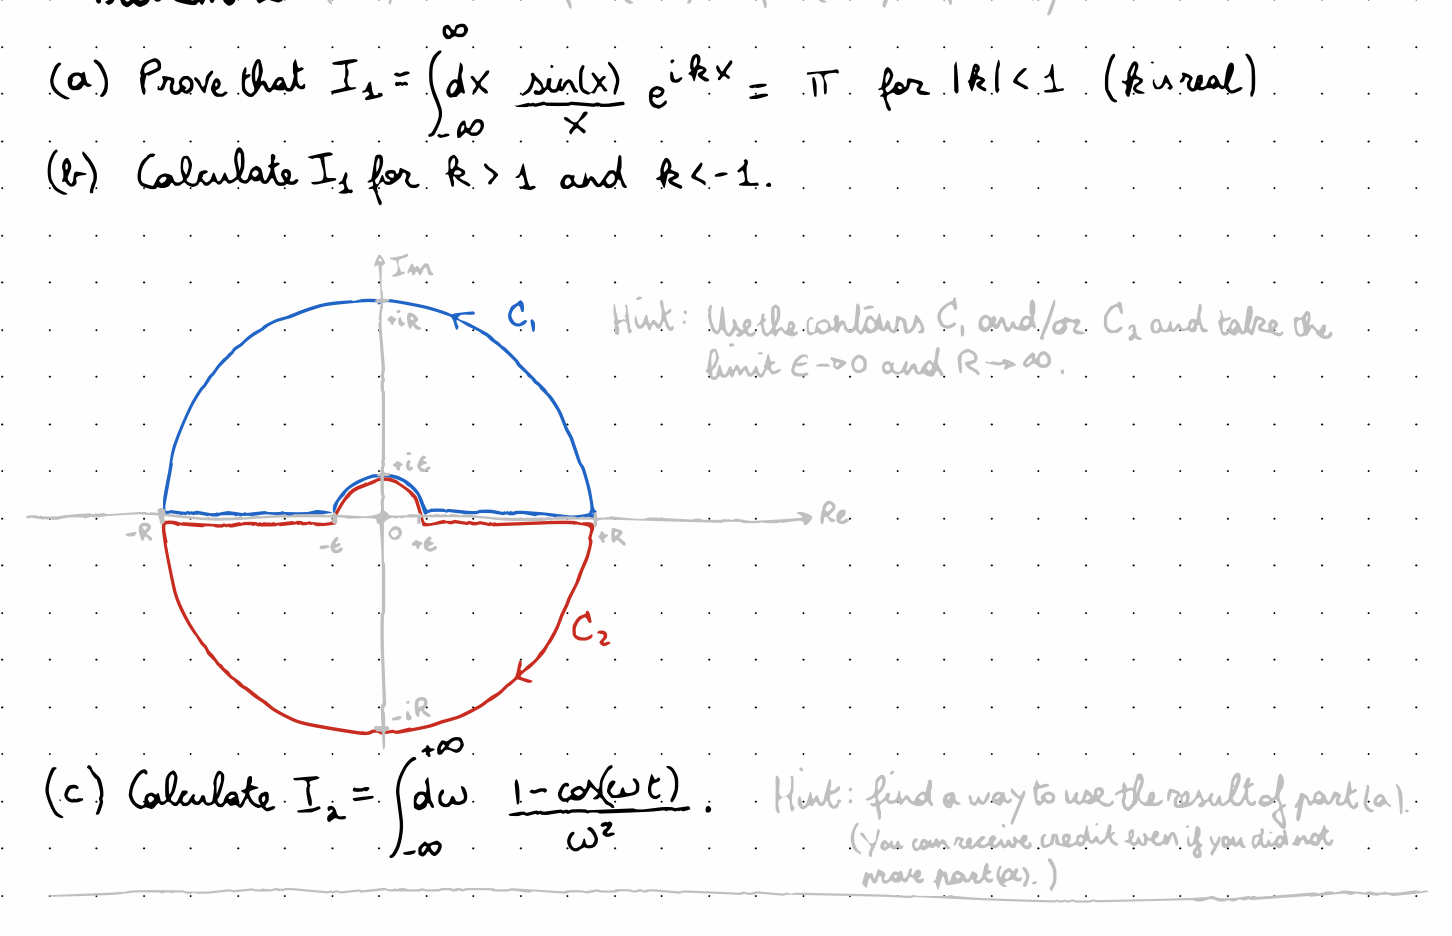 (a) Prove that I₁ = ∫_{-∞}^{∞} dx sin(x)/x e^{ikx} = π for |k| < 1 (k is real)
(b) Calculate I₁ for k > 1 and k < -1.
Im
+iR
C₁
Hint: Use the contours C₁ and/or C₂ and take the
limit ε → 0 and R → ∞.
+iε
Re
-R
-ε
0
+ε
+R
C₂
-iR
(c) Calculate I₂ = ∫_{-∞}^{+∞} dω (1 - cos(ωt))/ω² .
Hint: find a way to use the result of part (a).
(You can receive credit even if you did not
prove part (a).)